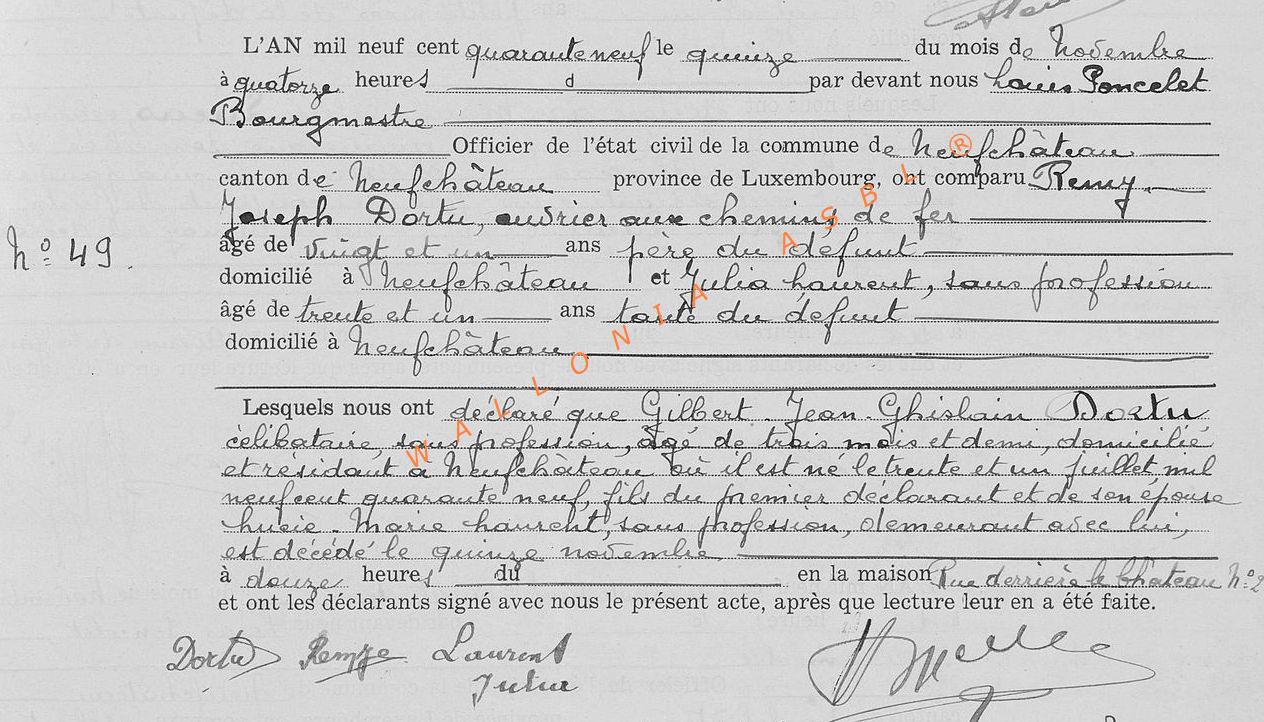 L'AN mil neuf cent quarante neuf le quinze du mois de Novembre
à quatorze heures d par devant nous Louis Poncelet
Bourgmestre
Officier de l'état civil de la commune de Neufchâteau
canton de Neufchâteau province de Luxembourg, ont comparu Remy
Joseph Dortu, ouvrier aux chemins de fer
âgé de vingt et un ans père du défunt
N° 49.
domicilié à Neufchâteau et Julia Laurent, sans profession
âgé de trente et un ans tante du défunt
domicilié à Neufchâteau
Lesquels nous ont déclaré que Gilbert Jean Ghislain Dortu
célibataire, sans profession, âgé de trois mois et demi, domicilié
et résidant à Neufchâteau où il est né le trente et un juillet mil
neuf cent quarante neuf, fils du premier déclarant et de son épouse
Lucie Marie Laurent, sans profession, demeurant avec lui,
est décédé le quinze novembre
à douze heures du en la maison Rue derrière le Château N° 2
et ont les déclarants signé avec nous le présent acte, après que lecture leur en a été faite.
Dortu Remy Laurent
Julia
WALLONIA ASBL ®